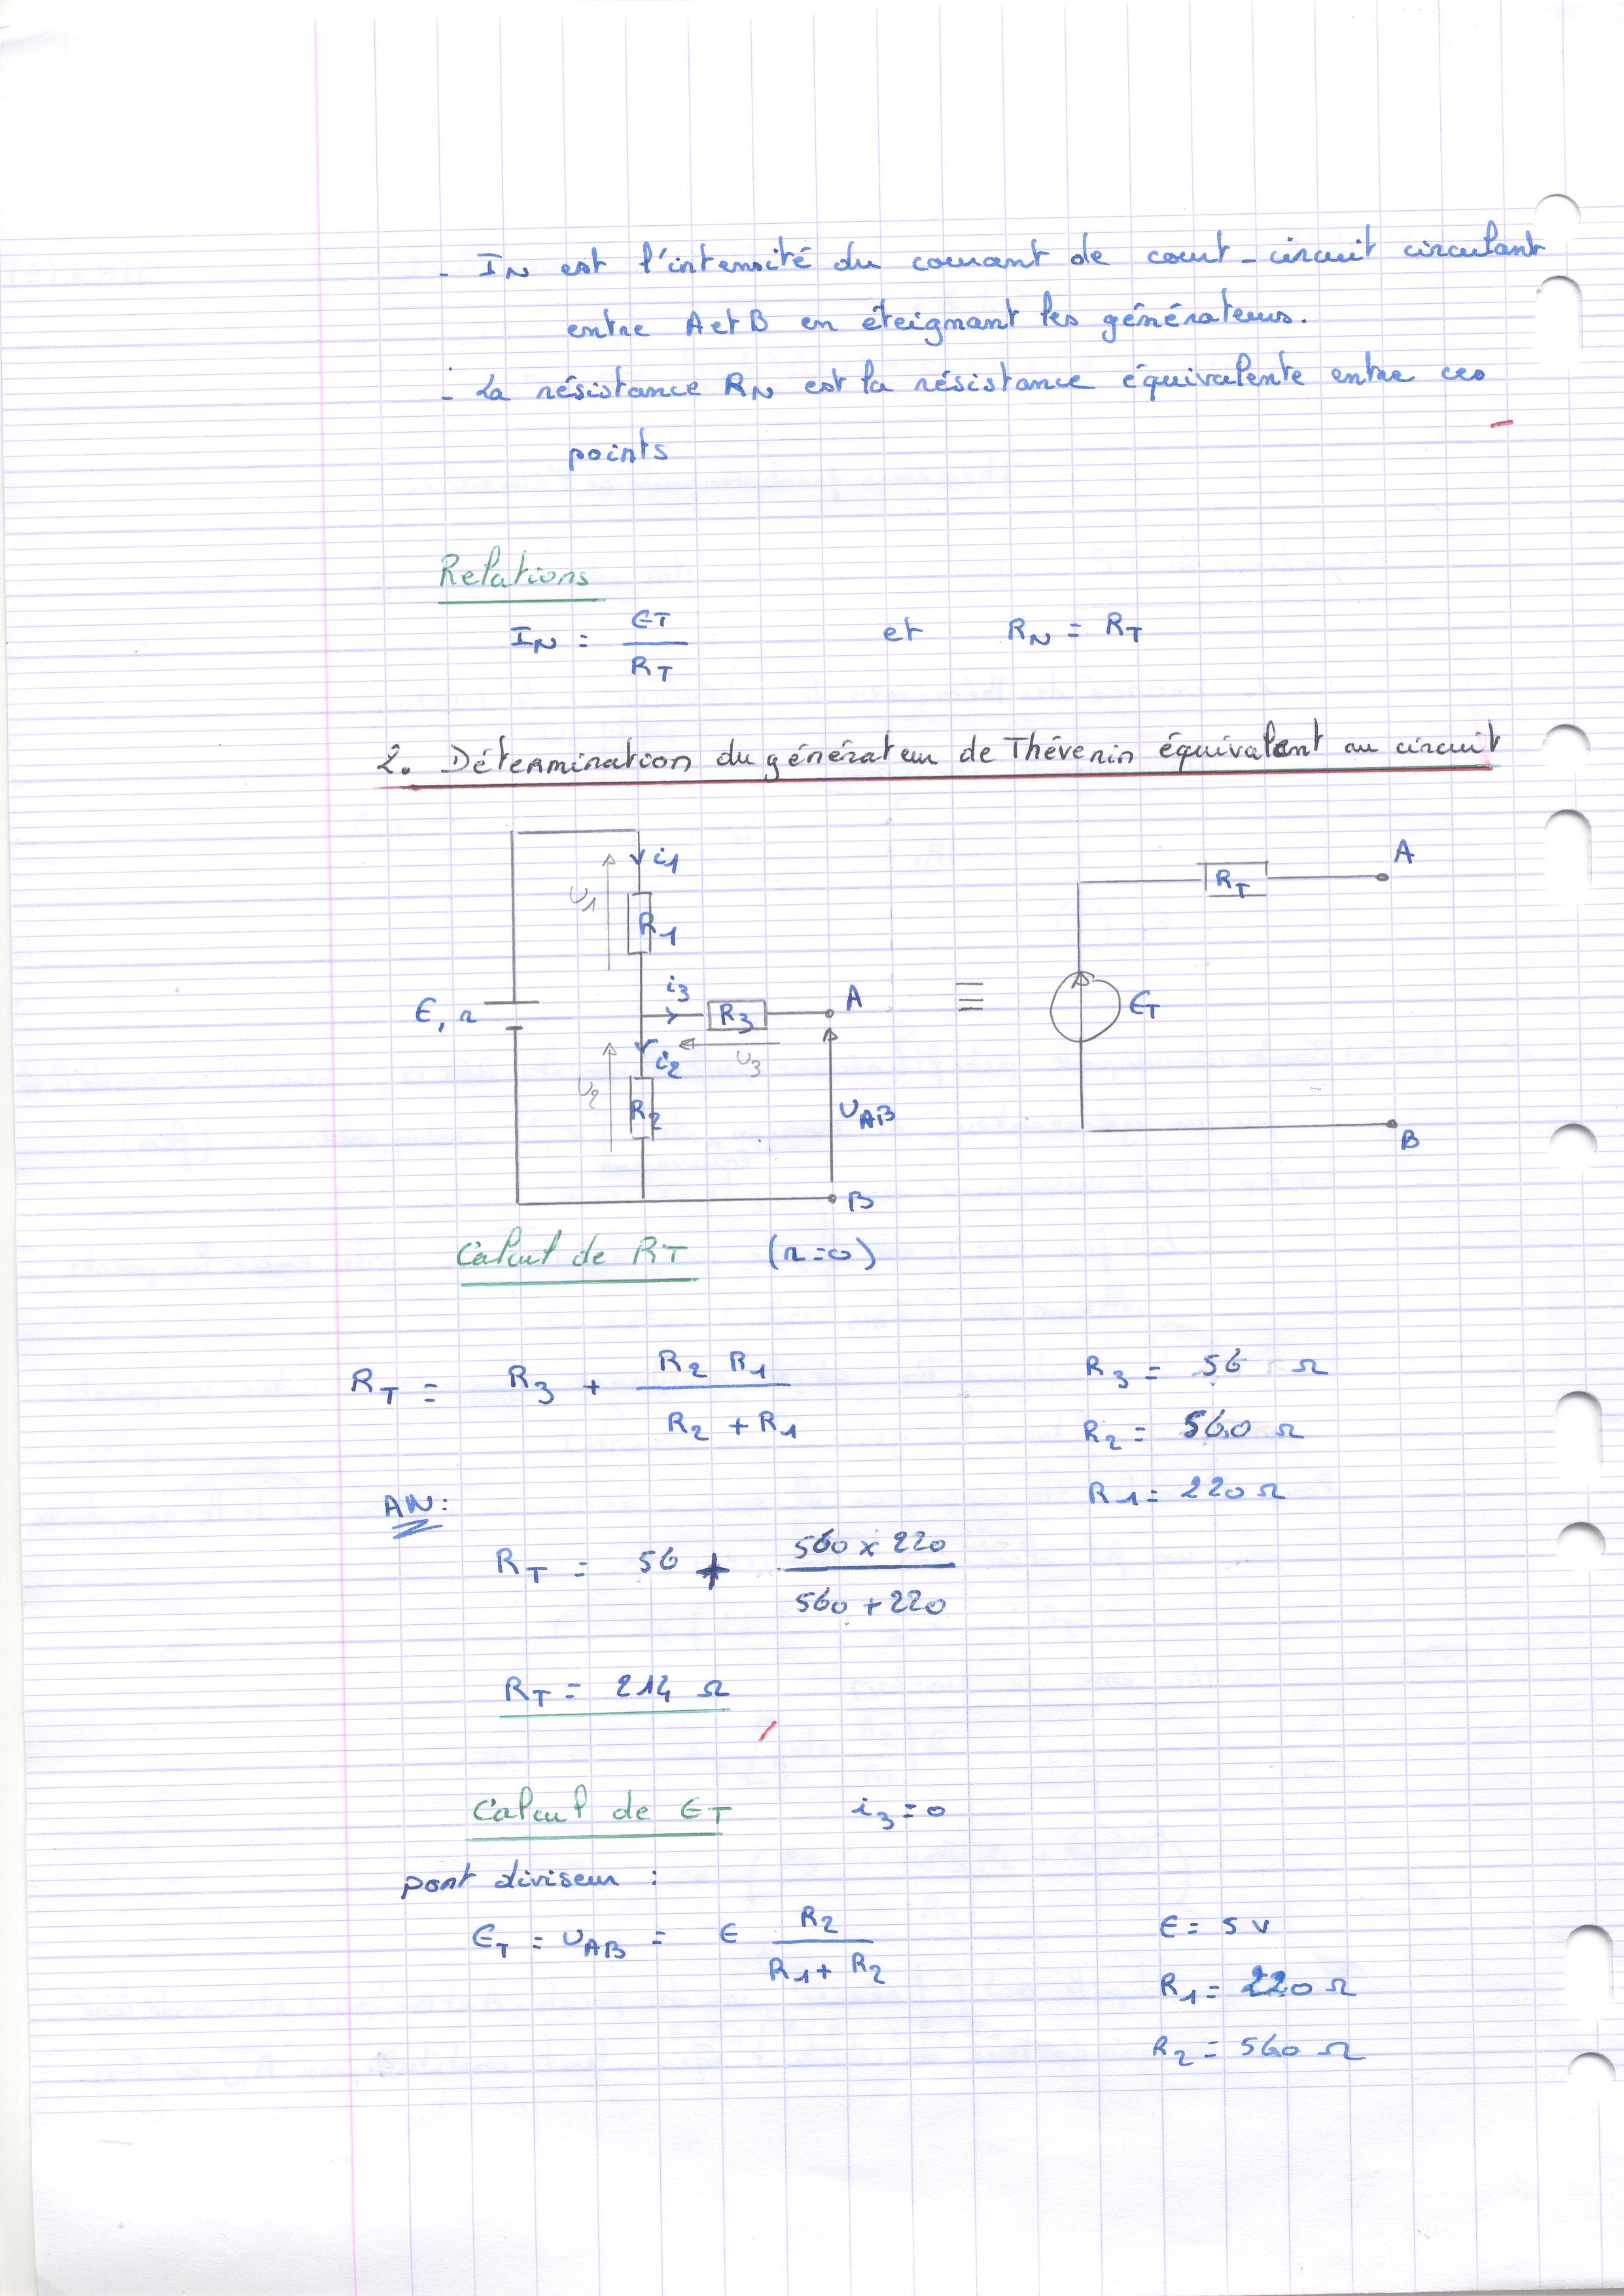 - IN est l'intensité du courant de court-circuit circulant
entre A et B en éteignant les générateurs.
- La résistance RN est la résistance équivalente entre ces
points
Relations
IN = ET / RT et RN = RT
2. Détermination du générateur de Thévenin équivalent au circuit
i1
U1
R1
E, r
i3
R3
A
i2
U3
U2
R2
UAB
B
≡
RT
A
ET
B
Calcul de RT (r=0)
RT = R3 + R2 R1 / R2 + R1
R3 = 56 Ω
R2 = 560 Ω
R1 = 220 Ω
AN:
RT = 56 + 560 x 220 / 560 + 220
RT = 214 Ω
Calcul de ET i3 = 0
pont diviseur :
ET = UAB = E R2 / R1 + R2
E = 5 V
R1 = 220 Ω
R2 = 560 Ω